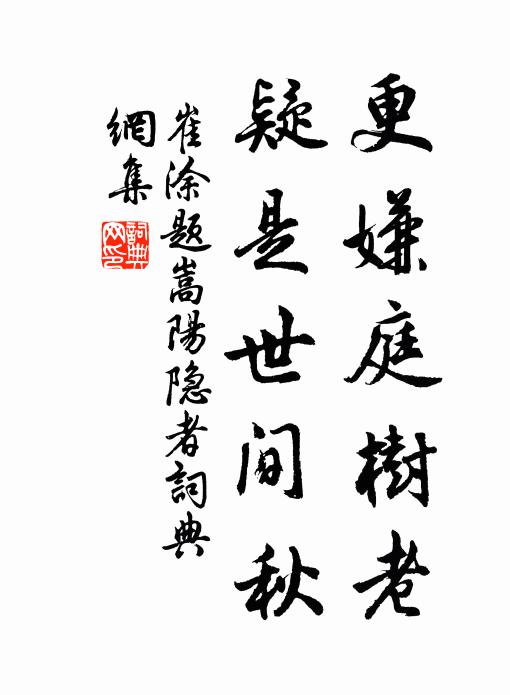 更嫌庭樹老
疑是世间秋
崔涂题嵩陽隐者詞典
網集
詞典
网印